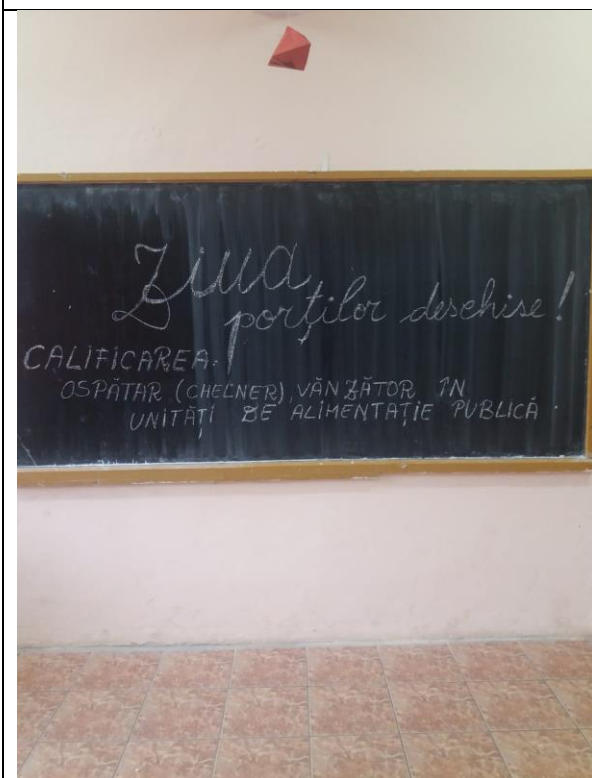 Ziua
porților deschise!
CALIFICAREA:
OSPĂTAR (CHELNER), VÂNZĂTOR ÎN
UNITĂȚI DE ALIMENTAȚIE PUBLICĂ